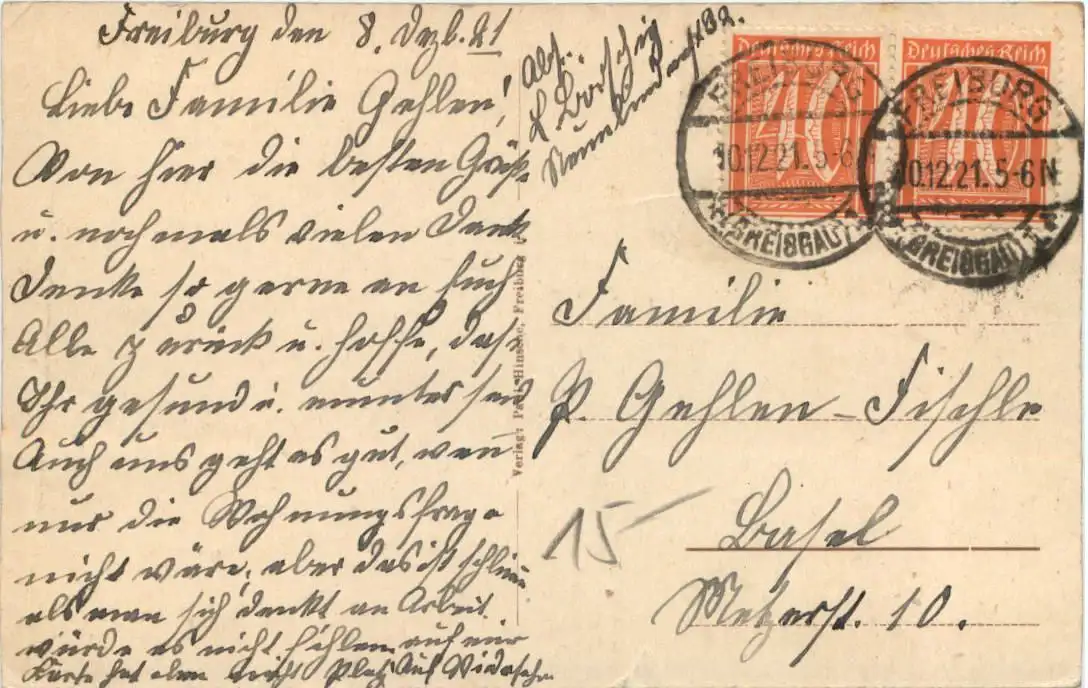 Freiburg den 8. Dezb. 21
Liebe Familie Gehlen!
Von hier die besten Grüße
u. nochmals vielen Dank
Denke so gerne an Euch
Alle zurück u. hoffe, dass
Ihr gesund u. munter seid
Auch uns geht es gut, wenn
nur die Wohnungsfrage
nicht wäre, aber das ist schlimm
als man sich denkt an Arbeit
würde es nicht fehlen auf eine
Karte hat eben nicht Platz Auf Wiedersehn
Abs.
Verlag: Paul Hinsche, Freiburg
Deutsches Reich
40
Deutsches Reich
40
FREIBURG
10.12.21. 5-6 N
(BREISGAU)
FREIBURG
10.12.21. 5-6 N
(BREISGAU)
Familie
P. Gehlen-Fischle
Basel
Metzerst. 10.
15